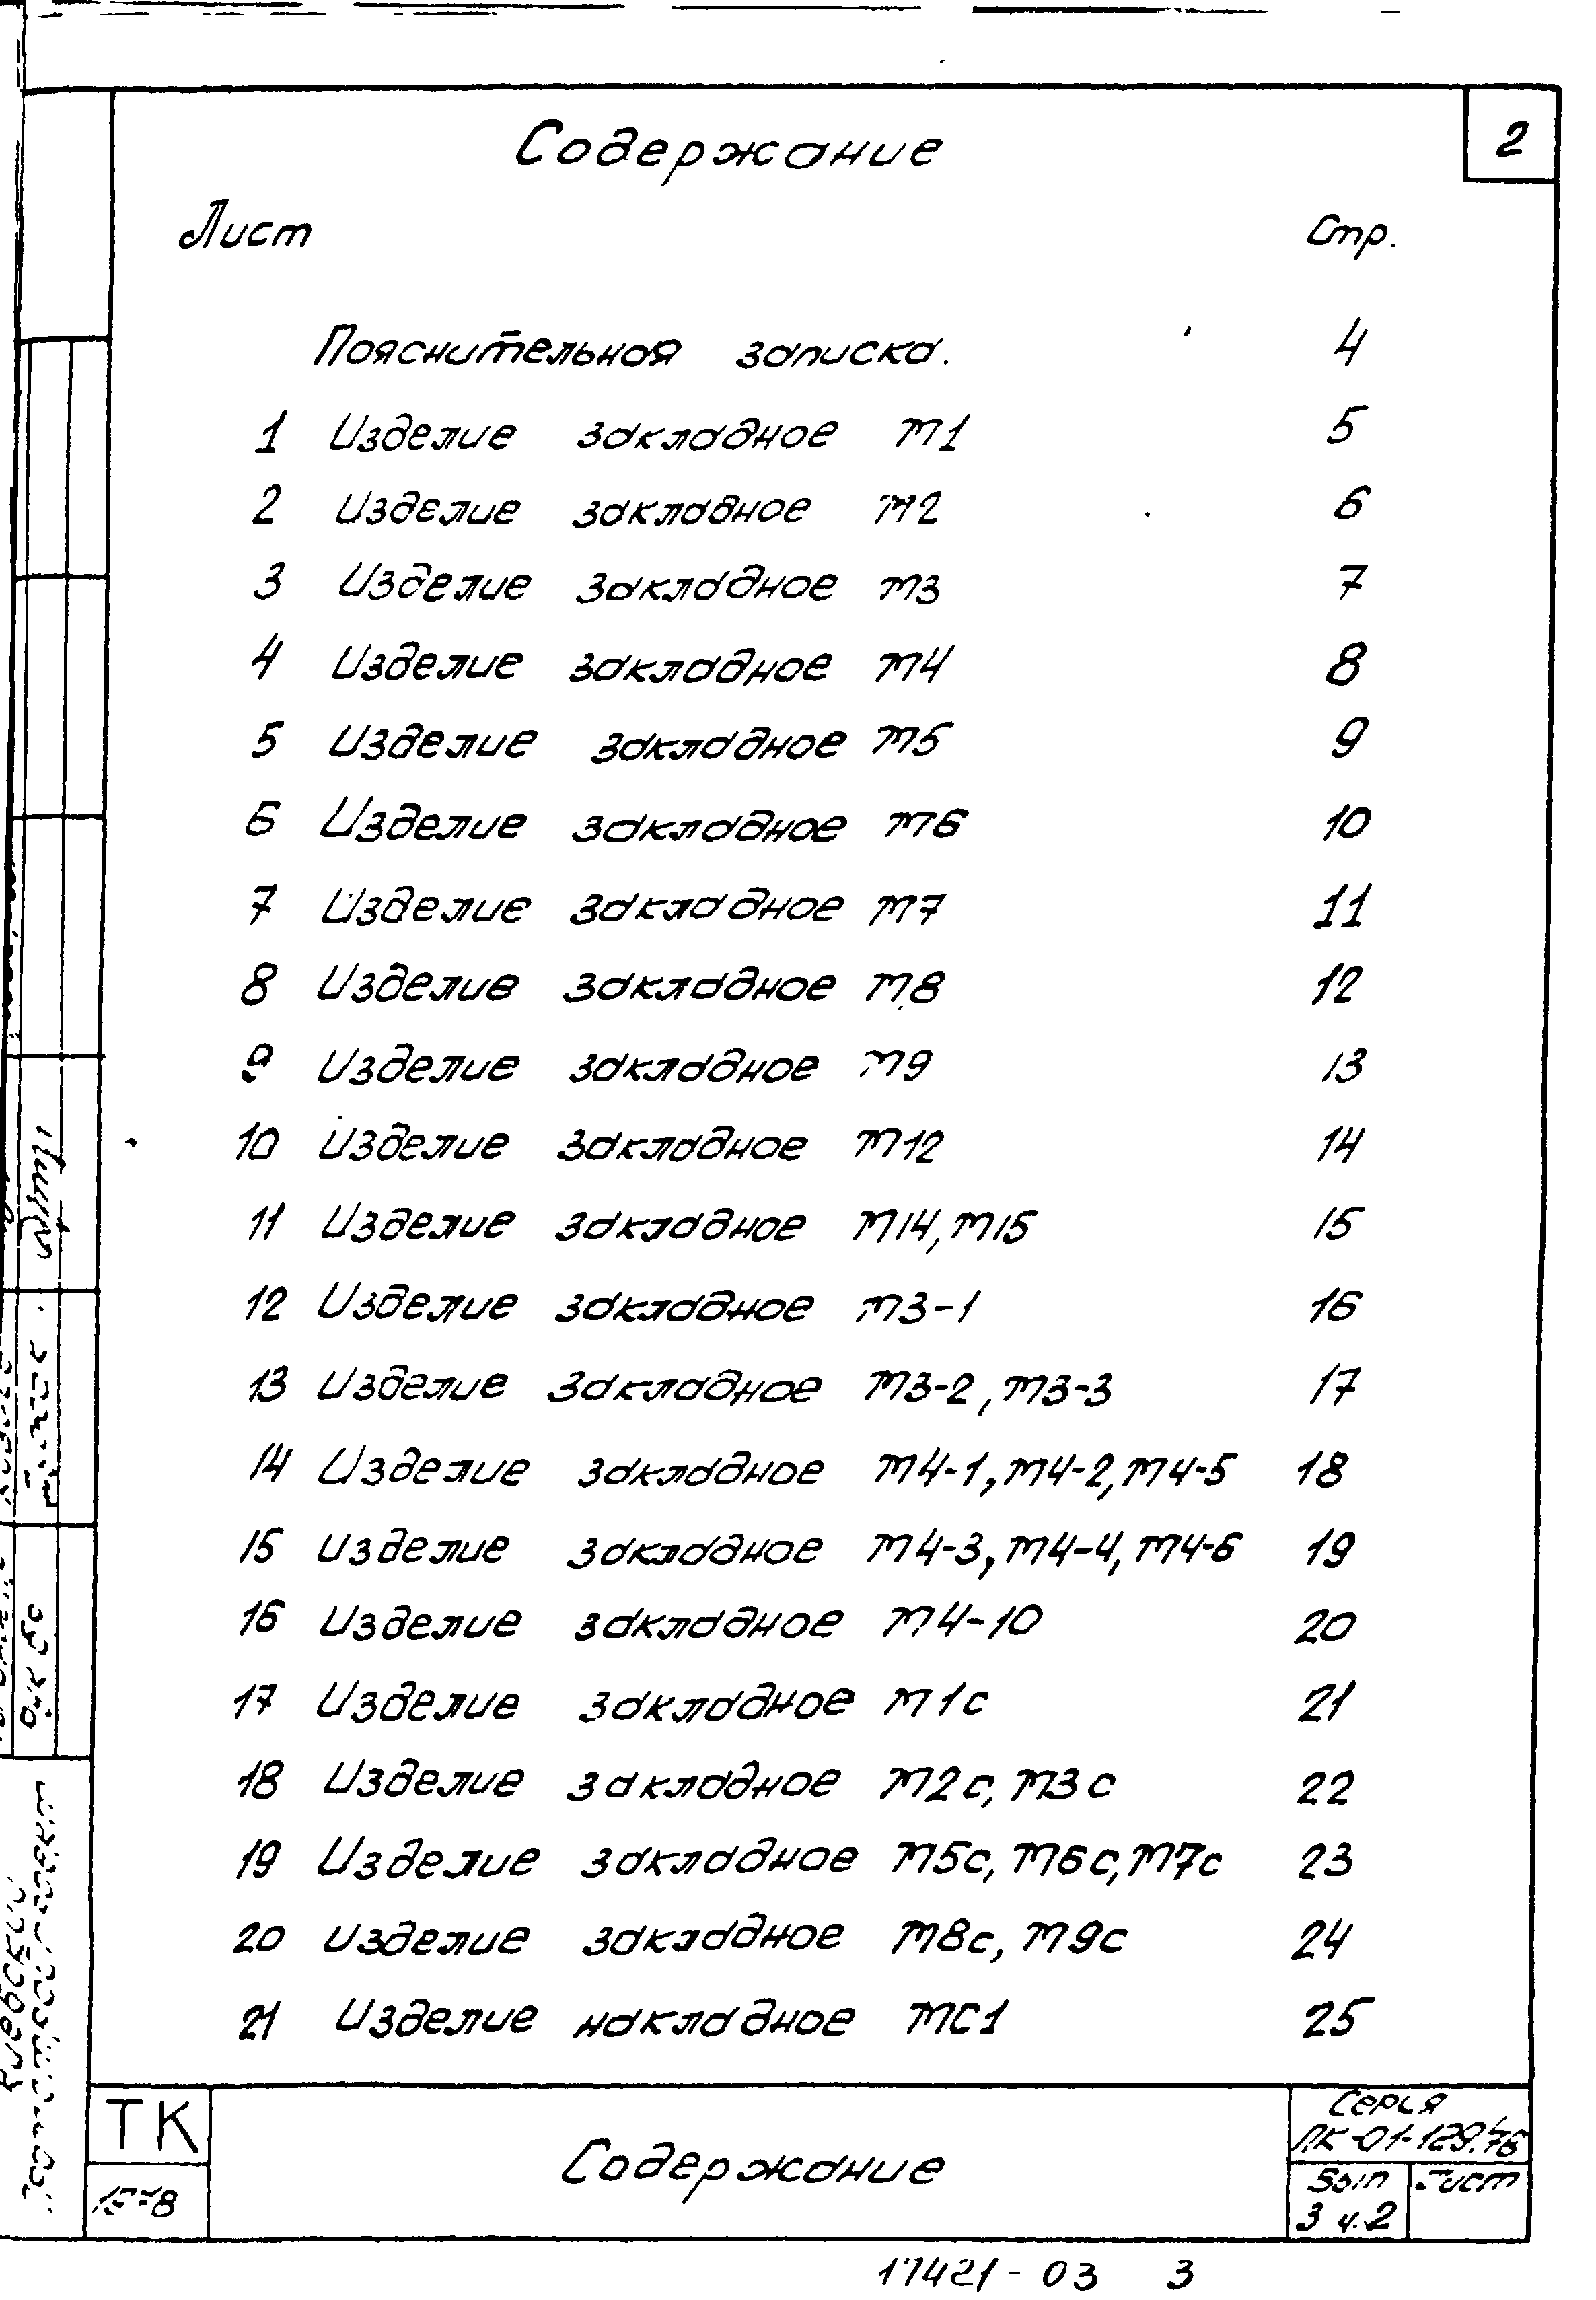 2
Содержание
Лист Стр.
Пояснительная записка. 4
1 Изделие закладное М1 5
2 Изделие закладное М2 6
3 Изделие закладное М3 7
4 Изделие закладное М4 8
5 Изделие закладное М5 9
6 Изделие закладное М6 10
7 Изделие закладное М7 11
8 Изделие закладное М8 12
9 Изделие закладное М9 13
10 Изделие закладное М12 14
11 Изделие закладное М14, М15 15
12 Изделие закладное М3-1 16
13 Изделие закладное М3-2, М3-3 17
14 Изделие закладное М4-1, М4-2, М4-5 18
15 Изделие закладное М4-3, М4-4, М4-6 19
16 Изделие закладное М4-10 20
17 Изделие закладное М1с 21
18 Изделие закладное М2с, М3с 22
19 Изделие закладное М5с, М6с, М7с 23
20 Изделие закладное М8с, М9с 24
21 Изделие накладное МС1 25
ТК
Содержание
Серия
ПК-01-129.78
Вып Лист
3 ч.2
17421-03 3